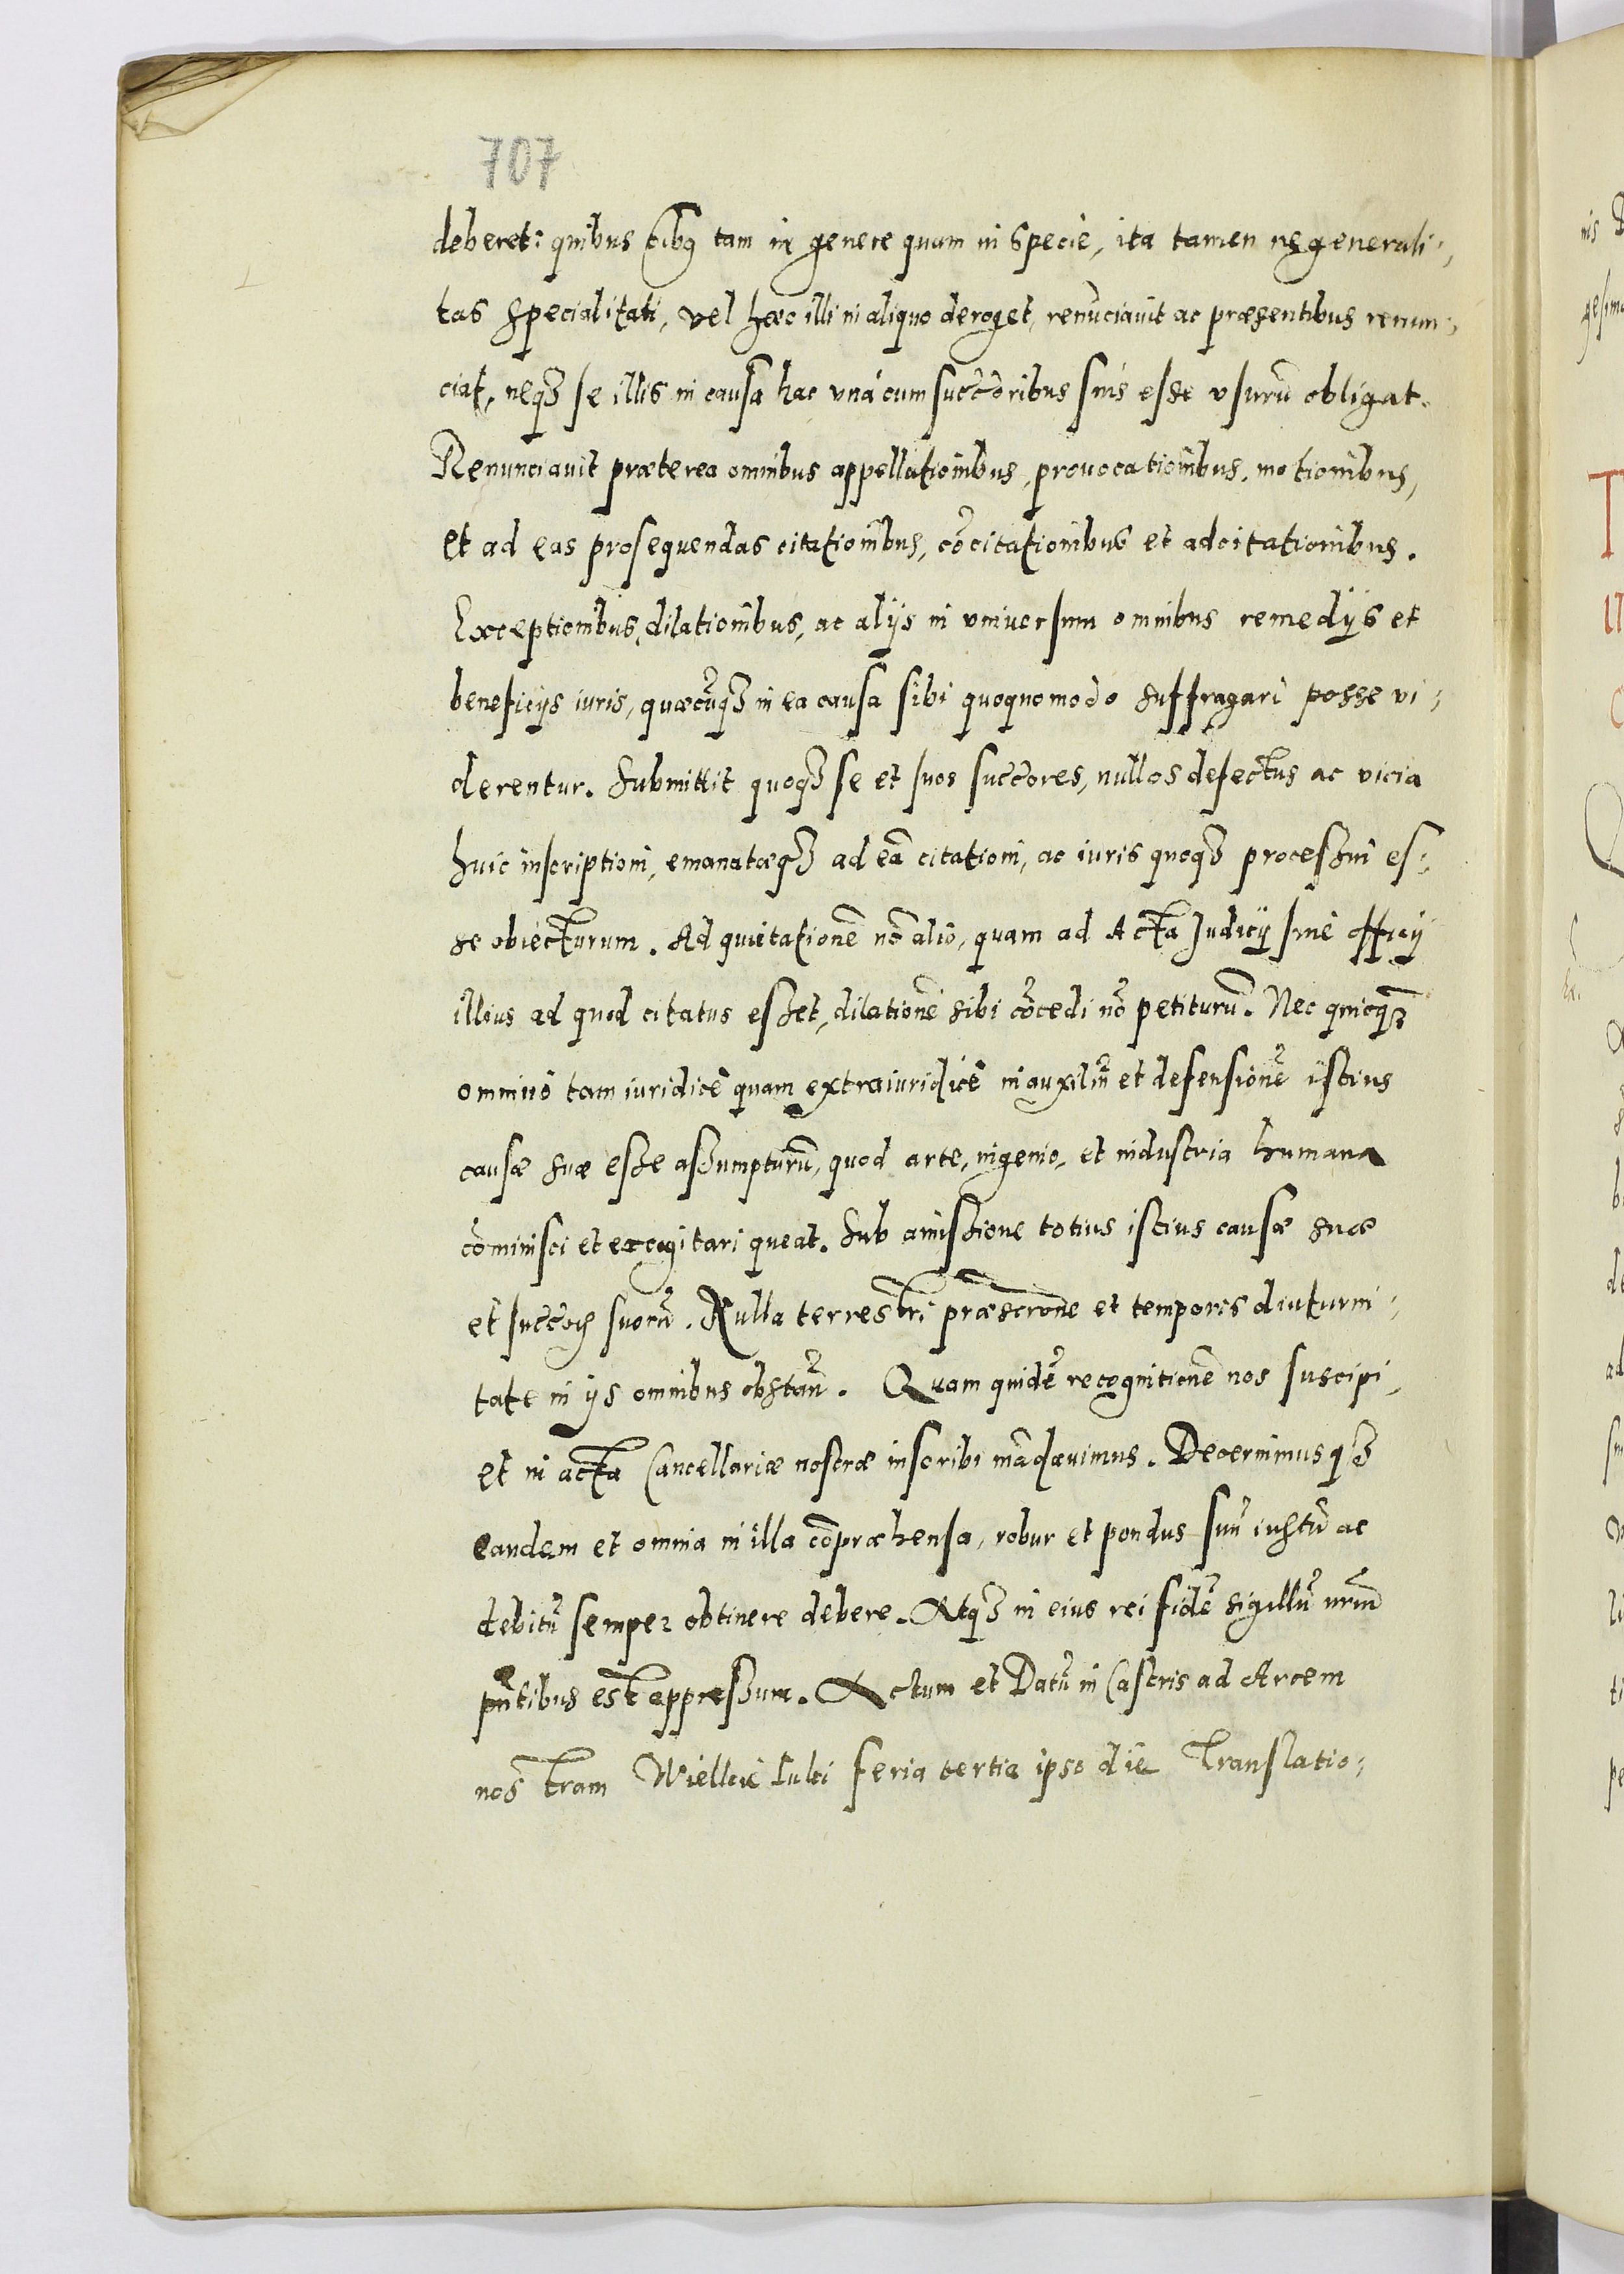 707
deberet: quibus oĩbꝯ tam in genere quam in specie, ita tamen ne generali-
tas specialitati, vel hæc illi in aliquo deroget, renũciauit ac præsentibus renun-
ciat, neqꝫ se illis in causa hac vná cum succ̃oribus suis esse vsurũ obligat.
Renunciauit præterea omnibus appellationibus, prouocationibus, motionibus,
et ad eas prosequendas citationibus, cõcitationibus et adcitationibus.
Exceptionibus, dilationibus, ac alijs in vniuersum omnibus remedijs et
beneficijs iuris, quæcũqꝫ in ea causa sibi quoquomodo suffragari posse vi-
derentur. Submittit quoqꝫ se et suos succ̃ores, nullos defectus ac vicia
huic inscriptioni, emanatæqꝫ ad eã citationi, ac iuris quoqꝫ processui es-
se obiecturum. Ad quietationẽ nõ alio, quam ad Acta Judicij siue officij
illius ad quod citatus esset, dilationẽ sibi cõcedi nõ petiturũ. Nec quicqꝫ
omnino tam iuridicè quam extraiuridicè in auxiliũ et defensionẽ istius
causæ suæ esse assumpturũ, quod arte, ingenio, et industria humana
cõminisci et excogitari queat. Sub amissione totius istius causæ suæ
et succ̃oꝝ suorũ. Nulla terrestri præscr̃one et temporis diuturni-
tate in ijs omnibus obstañ. Quam quidẽ recognitionẽ nos suscipi,
et in acta Cancellariæ nostræ inscribi mãdauimus. Decernimusqꝫ
eandem et omnia in illa cõpræhensa, robur et pondus suũ iustũ ac
debitũ semper obtinere debere. Atqꝫ in eius rei fidẽ sigillũ nr̃m
pñtibus est appressum. Actum et Datũ in Castris ad Arcem
nostram Wielkie Luki feria tertia ipso die Translatio-